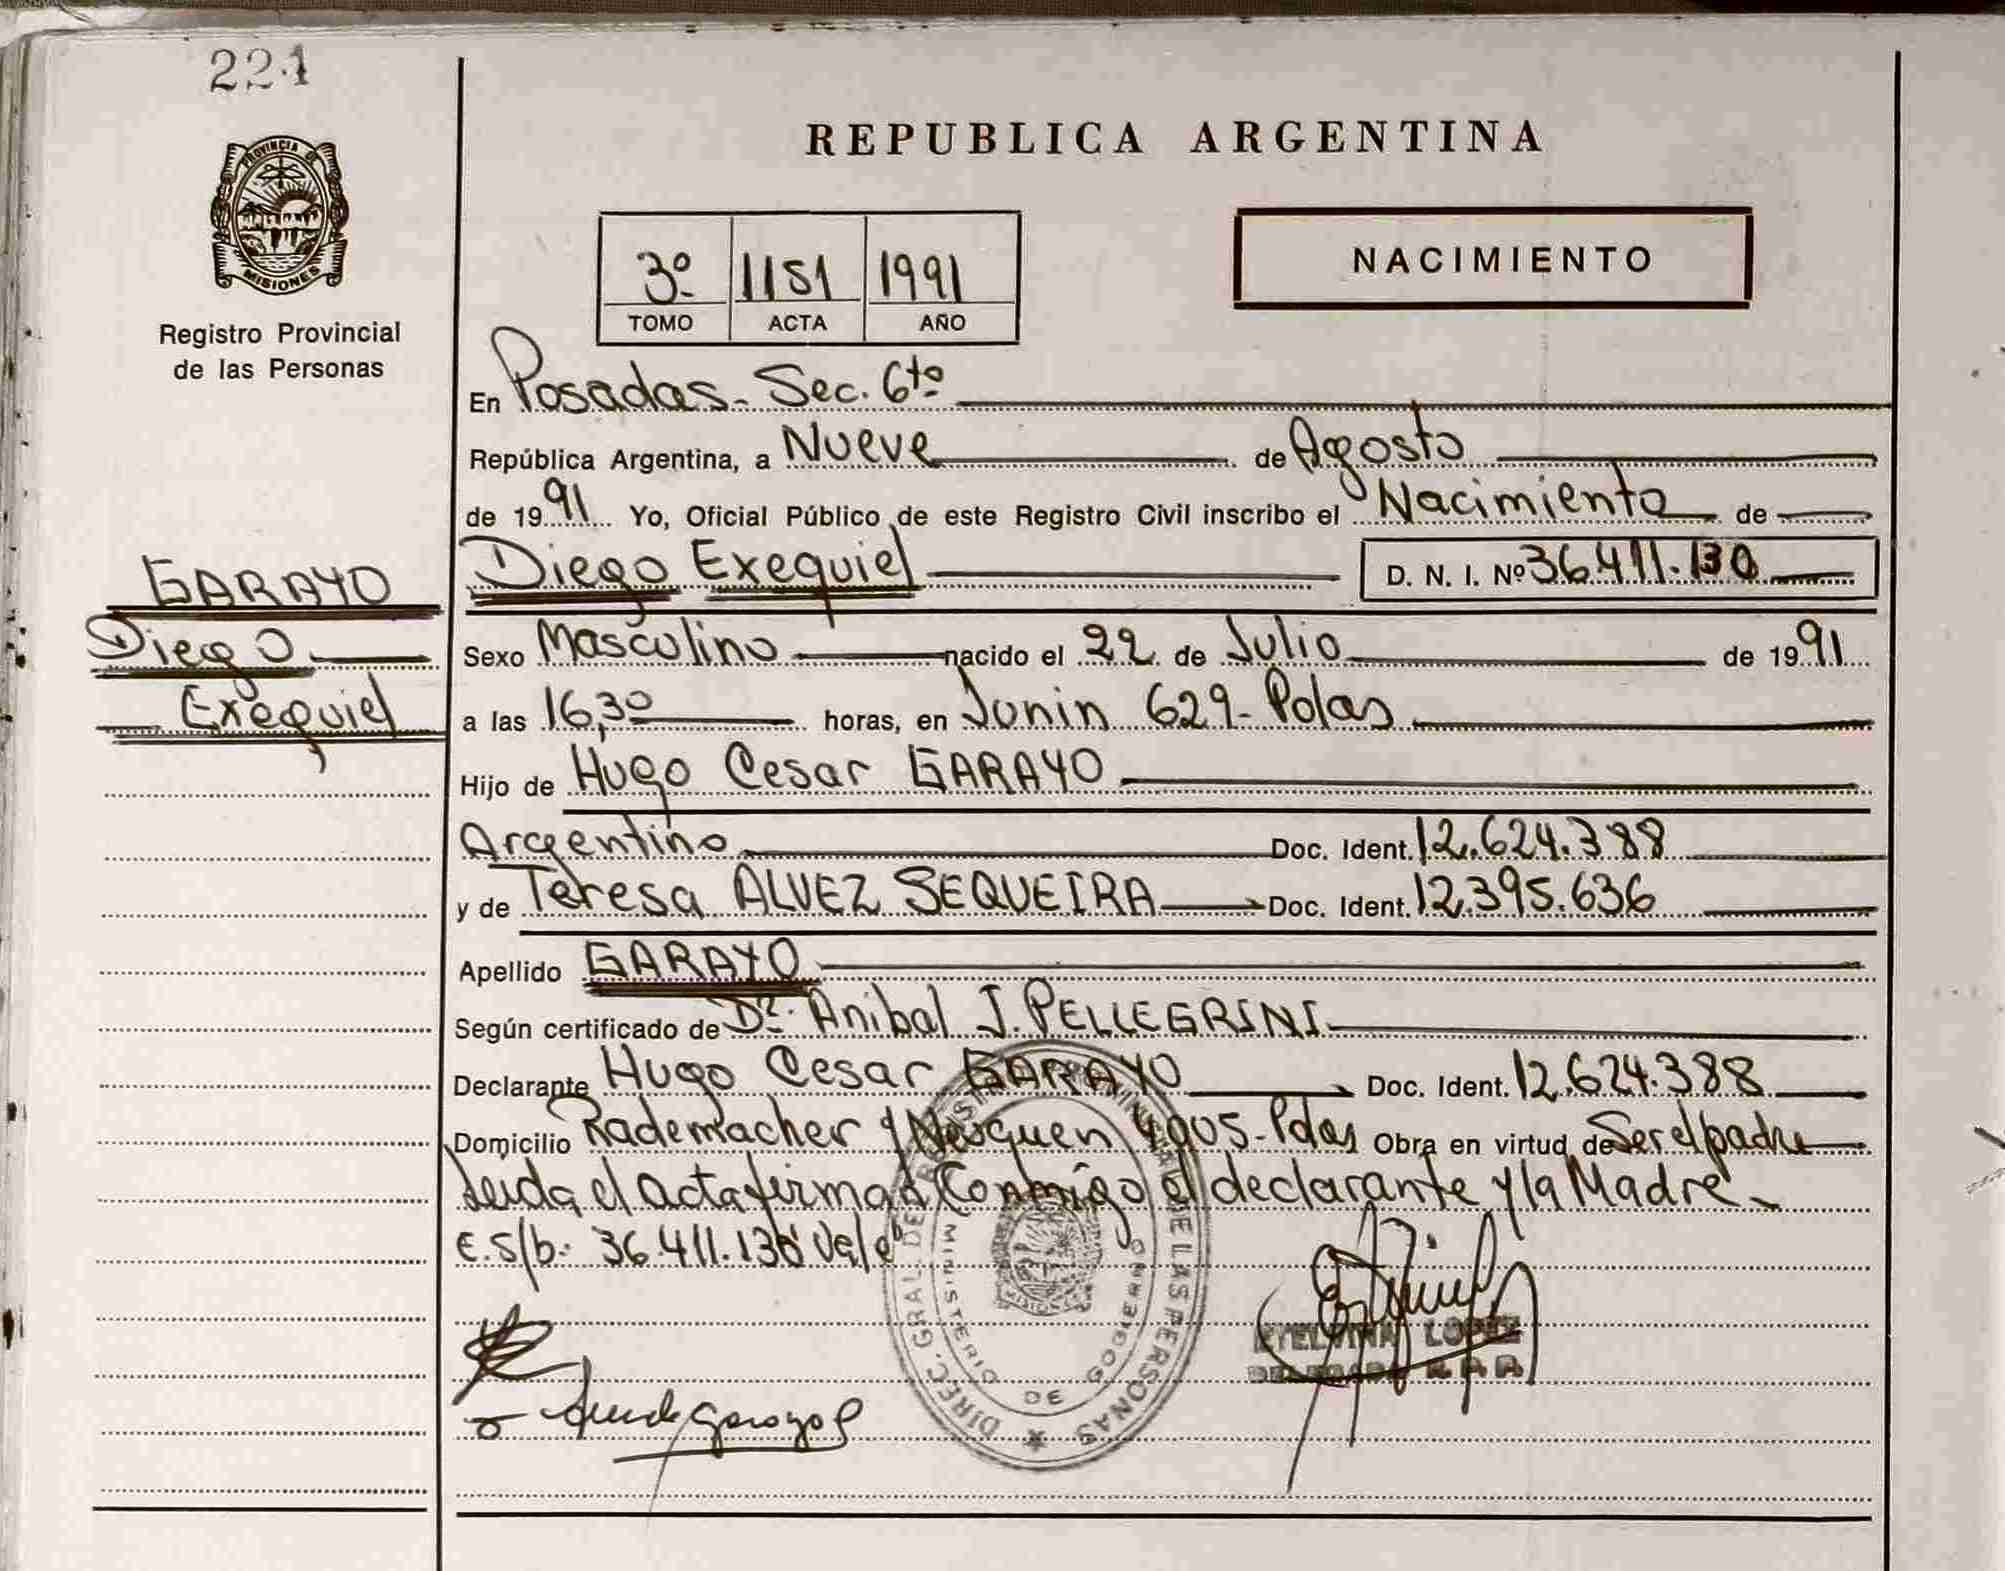 221
PROVINCIA DE
MISIONES
Registro Provincial
de las Personas
GARAYO
Diego
Exequiel
REPUBLICA ARGENTINA
3º 1151 1991
TOMO ACTA AÑO
NACIMIENTO
En Posadas - Sec. 6to
República Argentina, a Nueve de Agosto
de 1991 Yo, Oficial Público de este Registro Civil inscribo el Nacimiento de
Diego Exequiel D. N. I. Nº 36.411.130
Sexo Masculino nacido el 22 de Julio de 1991
a las 16,30 horas, en Junin 629 - Pdas
Hijo de Hugo Cesar GARAYO
Argentino Doc. Ident. 12.624.388
y de Teresa ALVEZ SEQUEIRA Doc. Ident. 12.395.636
Apellido GARAYO
Según certificado de Dr. Anibal J. PELLEGRINI
Declarante Hugo Cesar GARAYO Doc. Ident. 12.624.388
Domicilio Rademacher y Neuquen 4905 - Pdas Obra en virtud de Ser el padre
Leida el acta firman Conmigo el declarante y la Madre -
E. s/b: 36.411.130 Vale
DIREC. GRAL. DEL REGISTRO PROVINCIAL DE LAS PERSONAS
MINISTERIO DE GOBIERNO
LOPEZ